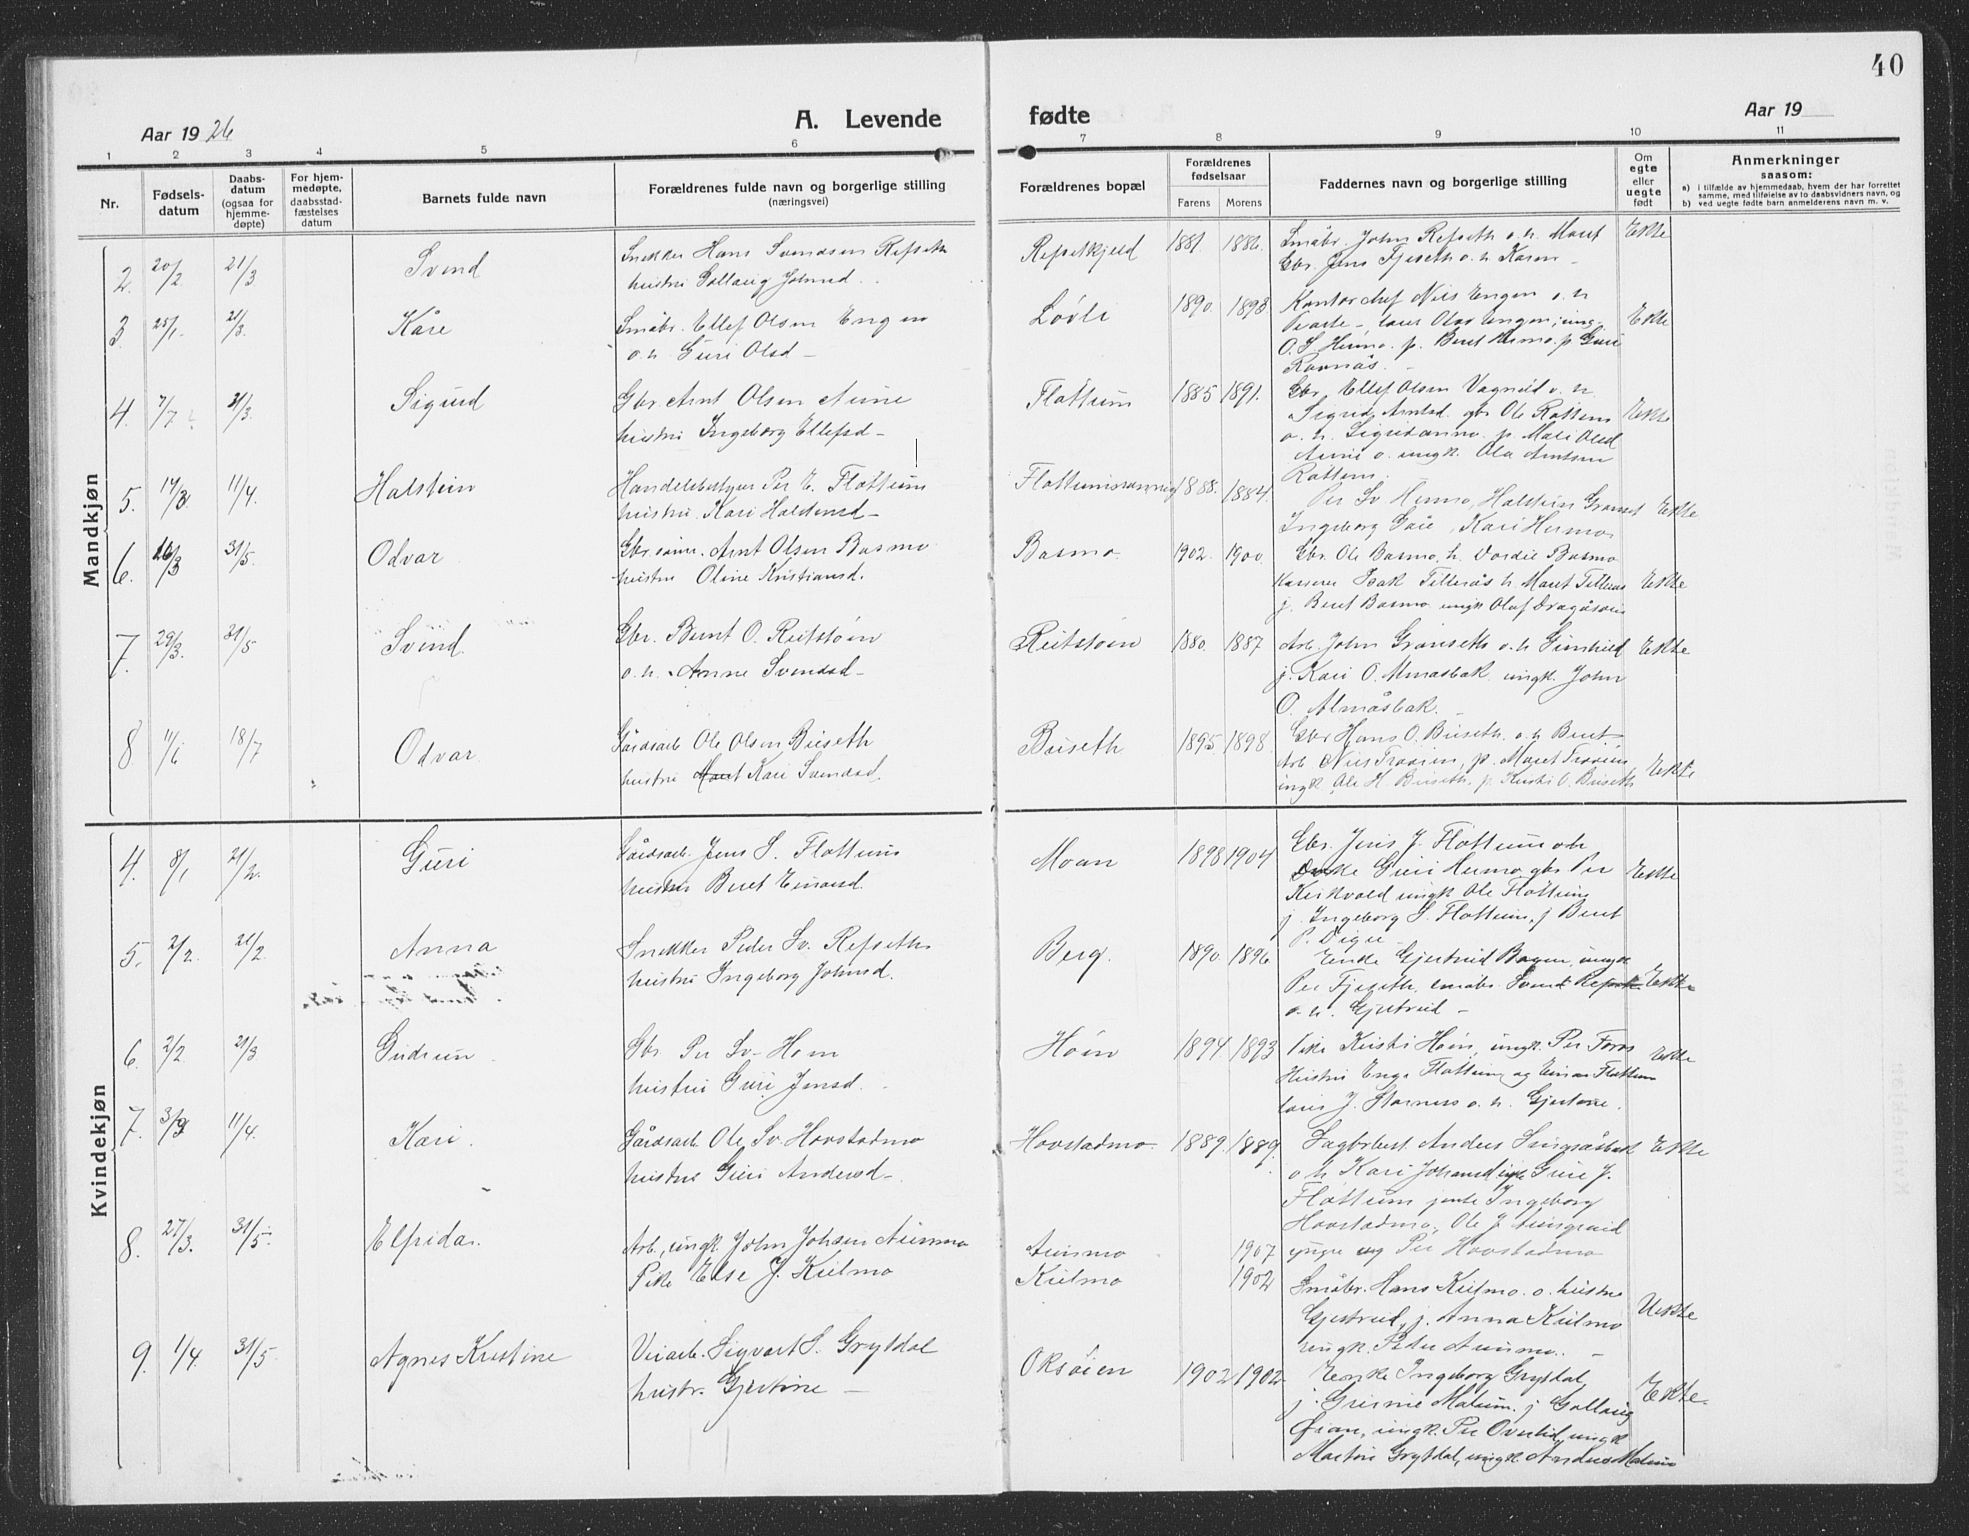 40
Aar 1926
A. Levende
fødte
Aar 19
1 2 3 4 5 6 7 8 9 10 11
Nr.
Fødsels-
datum
Daabs-
datum
(ogsaa for
hjemme-
døpte)
For hjem-
medøpte,
daabsstad-
fæstelses
datum
Barnets fulde navn
Forældrenes fulde navn og borgerlige stilling
(næringsvei)
Forældrenes bopæl
Forældrenes
fødselsaar
Farens Morens
Faddernes navn og borgerlige stilling
Om
egte
eller
uegte
født
Anmerkninger
saasom:
a) i tilfælde av hjemmedaab, hvem der har forrettet
samme, med tilføielse av to daabsvidners navn, og
b) ved uegte fødte barn anmelderens navn m. v.
Mandkjøn
2. 20/2 21/3 Svend
Snekker Hans Svendsen Refseth
hustru Sollaug Johnsd.
Refsetkjeld 1881. 1886.
Småbr. John Refseth o. h. Maret
Gbr. Jens Fjeseth o. h. Karen
Ekte
3. 25/1. 21/3. Kåre
Småbr. Ellef Olsen Engen
o. h. Guri Olsd
Lövli 1890. 1898.
Kontorchef Nils Engen o. h
O. S. Hermo. p. Beret Hermo. p Guri
Ravnås.
Ekte
4. 7/7 21/3. Sigurd
Gbr. Arnt Olsen Aune
hustru Ingeborg Ellefsd
Flottum 1885 1891.
Gbr. Ellef Olsen Vagnild o. h
Sigrid Arntsd. gbr Ole Rottem
o. h. p. Mali Olsd
Aune o. ungk. Ola Arntsen
Rottem.
Ekte
5. 14/3 11/4. Halstein
Handelsbestyrer Per E. Flottum
hustru Kari Halstensd
1888. 1884.
Per Sv Hermo, Halstein Granset
Ingeborg Kari Hermo
Ekte
6. 16/3 31/5. Odvar
Gbr.sönn. Arnt Olsen Basmo
hustru Oline Kristiansd.
Basmo. 1902. 1900.
Gbr. Ole Basmo, h. Dordie Basmo
Kasserer Isak Tillerås h. Maret Tillerås
j. Beret Basmo ungk Olaf Dragåsen
Ekte
7. 29/3. 31/5 Svend.
Gbr. Bernt O. Reitstöen
o. h. Anne Svendsd
Reitstöen 1880. 1887
Arb. John Granseth o. h Gunhild
j. Kari O. Almåsbak. ungk. John
O. Almåsbak.
Ekte
8 11/6 18/7 Odvar
Gårdsarb Ole Olsen Buseth
hustru Maret Kari Svendsd.
Buseth 1895. 1898.
Gbr Hans O. Buseth. o. h Beret
Arb Nils Trööien, p. Maret Trööien
ungk. Ole H. Buseth. p. Kirsti O. Buseth
Ekte
Kvindekjøn
4. 8/1 21/2. Guri
Gårdsarb. Jens S. Flottum
hustru Beret Einarsd.
Moan 1898 1904
Gbr. Jens J. Flottum o h
Enke Guri Hermo gbr Per
Kirkvold ungk Ole Flottum
j. Ingeborg S. Flottum, j Beret
P. Digre
Ekte
5. 2/2. 21/2. Anna
Snekker Peder Sv. Refseth
hustru Ingeborg Johnsd.
Berg. 1890. 1896.
Enke Gjertrud Bogen, ungk
Per Fjeseth, småbr. Svend Refseth
o. h. Gjertrud
Ekte
6. 2/2 21/3 Gudrun
Gbr Per Sv. Hoen
hustru Guri Jensd.
Höin 1894. 1893
Pike Kirsti Höin, ungk. Per Foros
Hustru Flottum og Einar Flottum
J. o. h. Gjertine.
Ekte
7. 3/3 11/4. Kari.
Gårdsarb Ole Sv. Hovstadmo
hustru Guri Andersd
Hovstadmo. 1889. 1889.
Sagbrbest Anders Singsåsbak
o. h. Kari Johansd Guri J.
Flottum jente Ingeborg
Hovstadmo, Ole J. Aungrind
yngre og Per Hovstadmo
Ekte
8. 27/3. 31/5. Elfrida.
Arb, ungk. John Johsen Aunmo
Pike Else J. Kulmo
Aunmo 1907
Kulmo 1902
Småbr. Hans Kulmo. o. hustru
Gjertrud, j. Anna Kulmo
ungk. Peder Aunmo.
Uekte
9. 1/4. 31/5 Agnes Kristine
Veiarb. Sigvart S. Grytdal
hustr. Gjertine
Oksöien 1902 1902
Enke Ingeborg Grytdal,
j. Malum. j Sollaug
Öian, ungk. Per Overlid, ungk
Martin Grytdal, ungk. Anders Malum
Ekte.